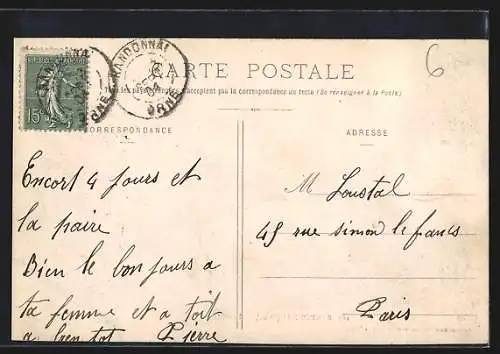 RANDONNAI
ORNE
15c
6
CARTE POSTALE
Tous les pays étrangers n'acceptent pas la correspondance au recto (Se renseigner à la Poste)
CORRESPONDANCE
ADRESSE
Encort 4 jours et
la paire
Bien le bonjours a
ta femme et a toit
a bientot Pierre
M Loustal
45 rue simon le francs
Paris